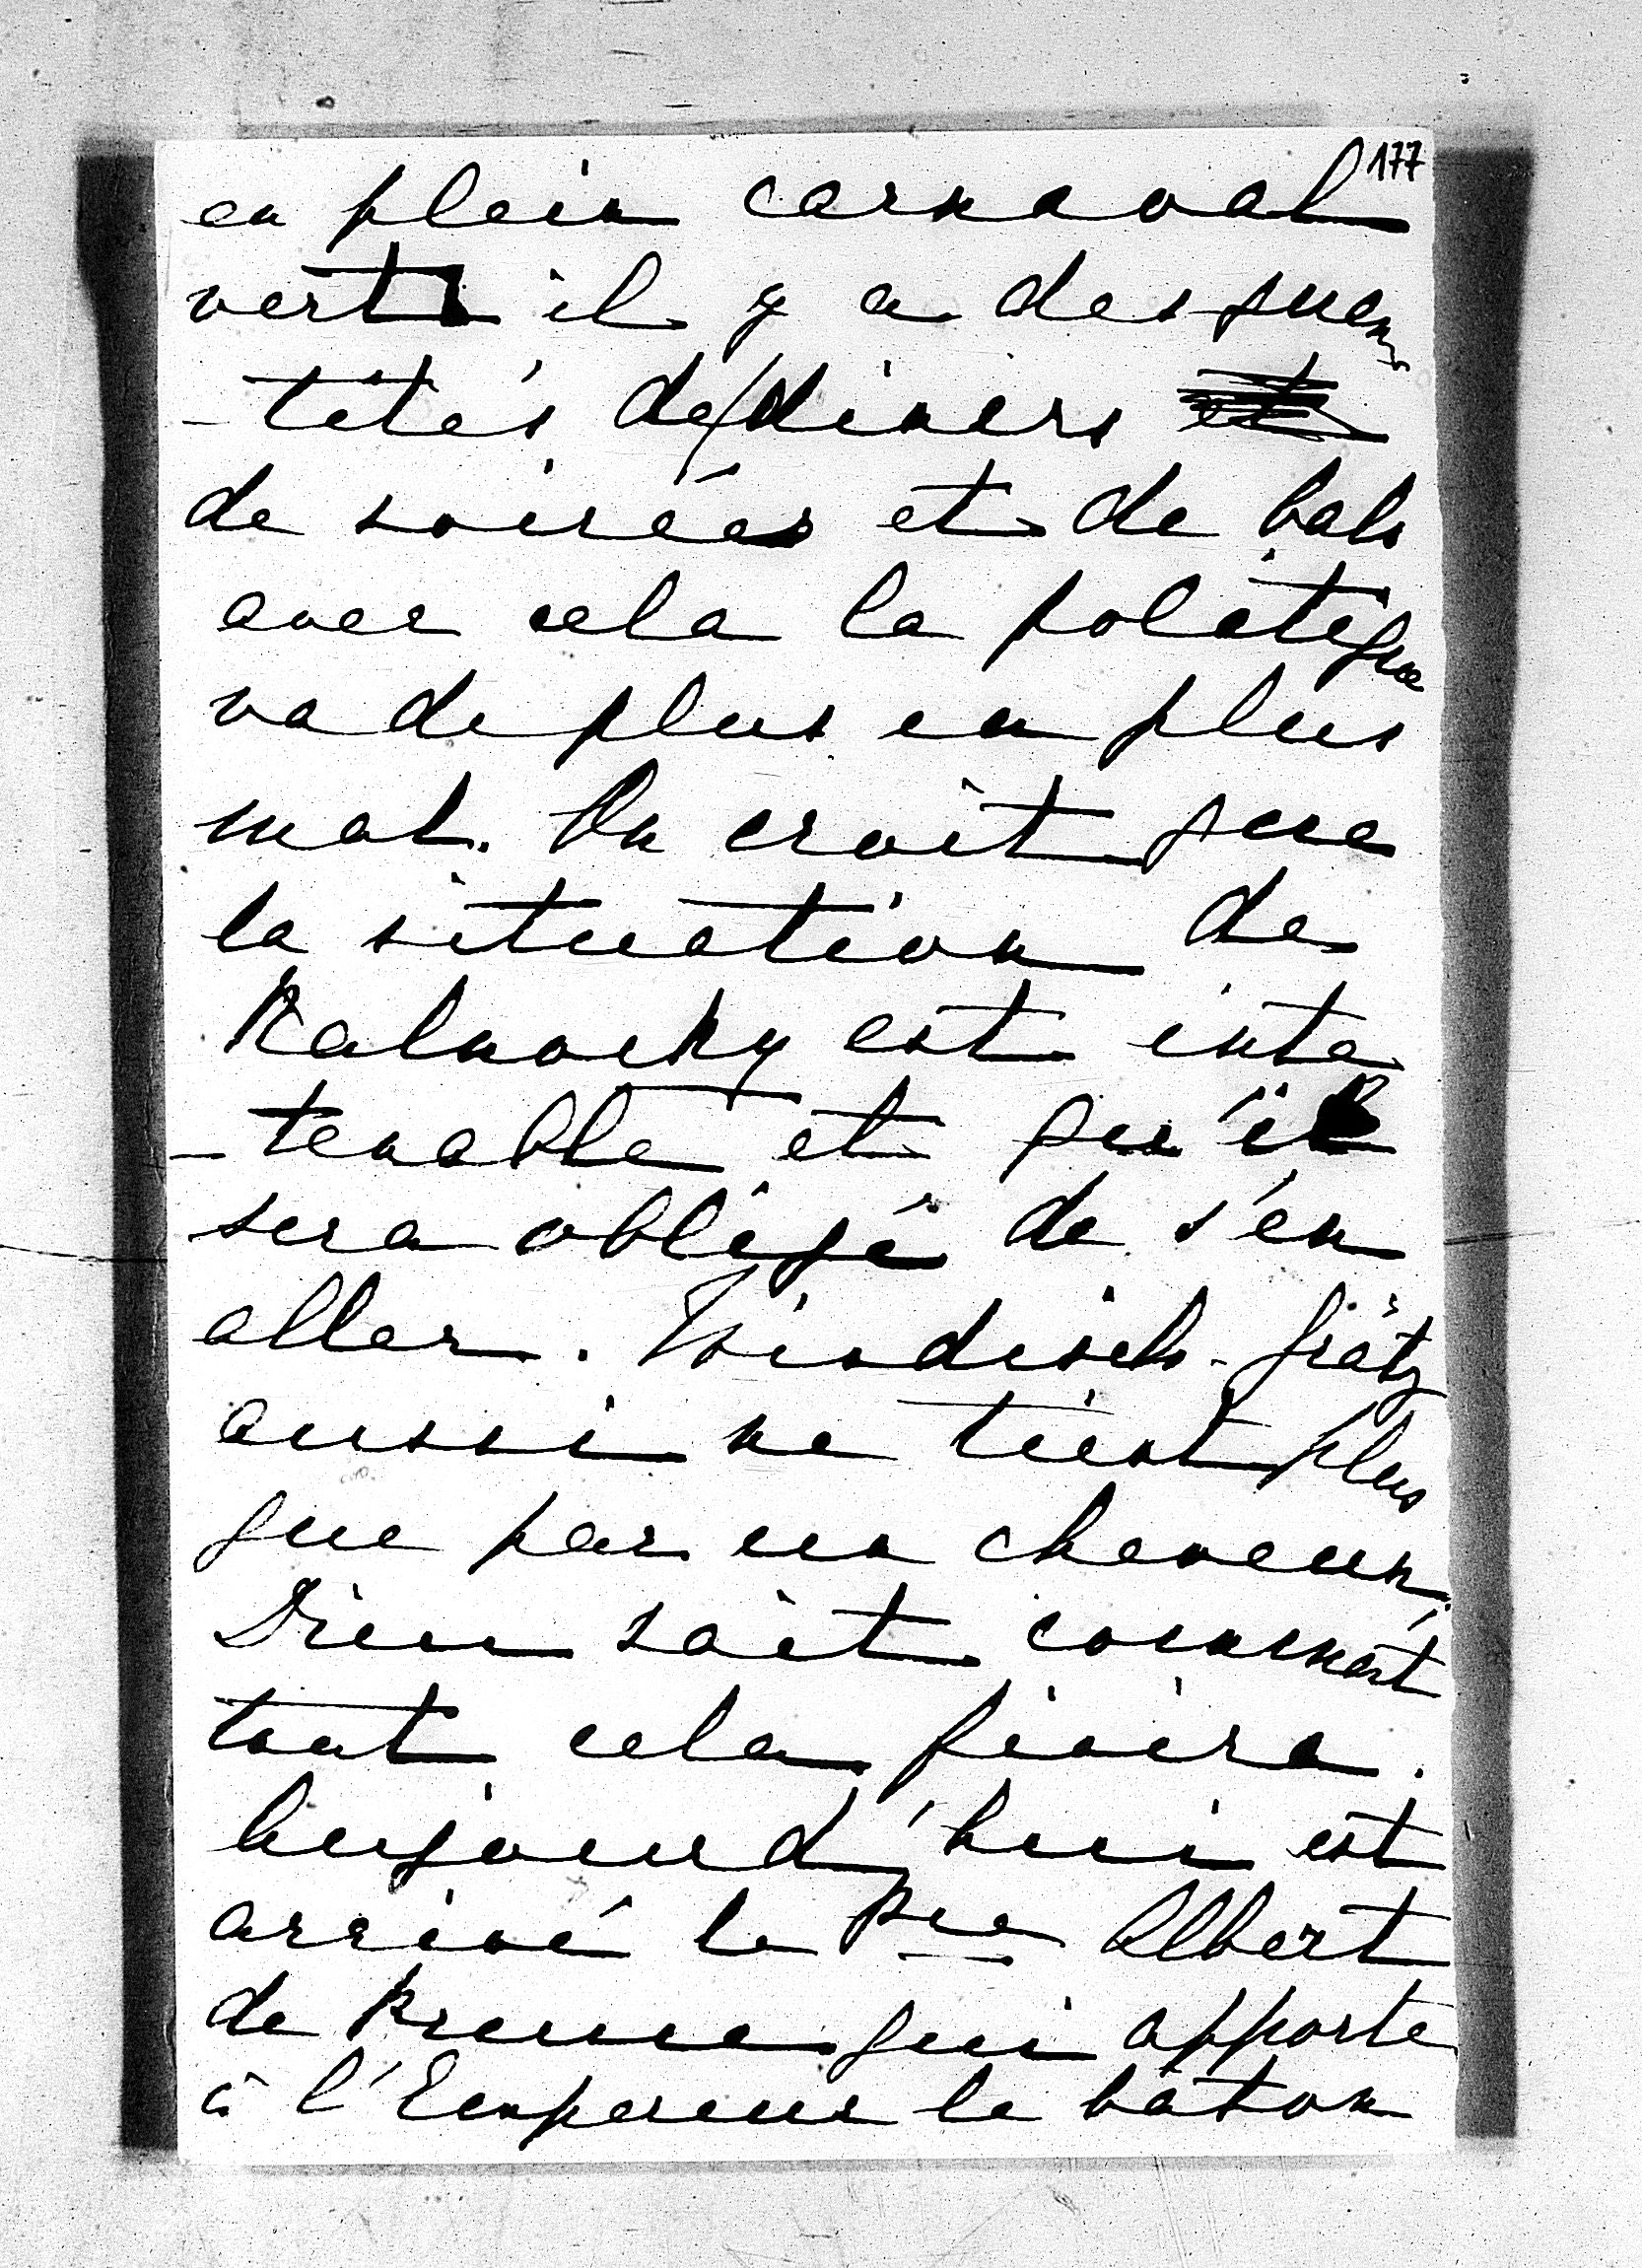 177
en plein carnaval
vert il y a des quen
-tités de diners
de soirées et de bals
avec cela la politique
va de plus en plus
mal. On croit que
la situation de
Kalnocky est inte
-tenable et qu'il
sera obligé de s'en
aller. Windisch-grätz
aussi ne tient plus
que par un cheveux.
Dieu sait comment
tout cela finira.
Aujourd'hui est
arrivé le Pce Albert
de Prusse qui apporte
à l'Empereur le bâton